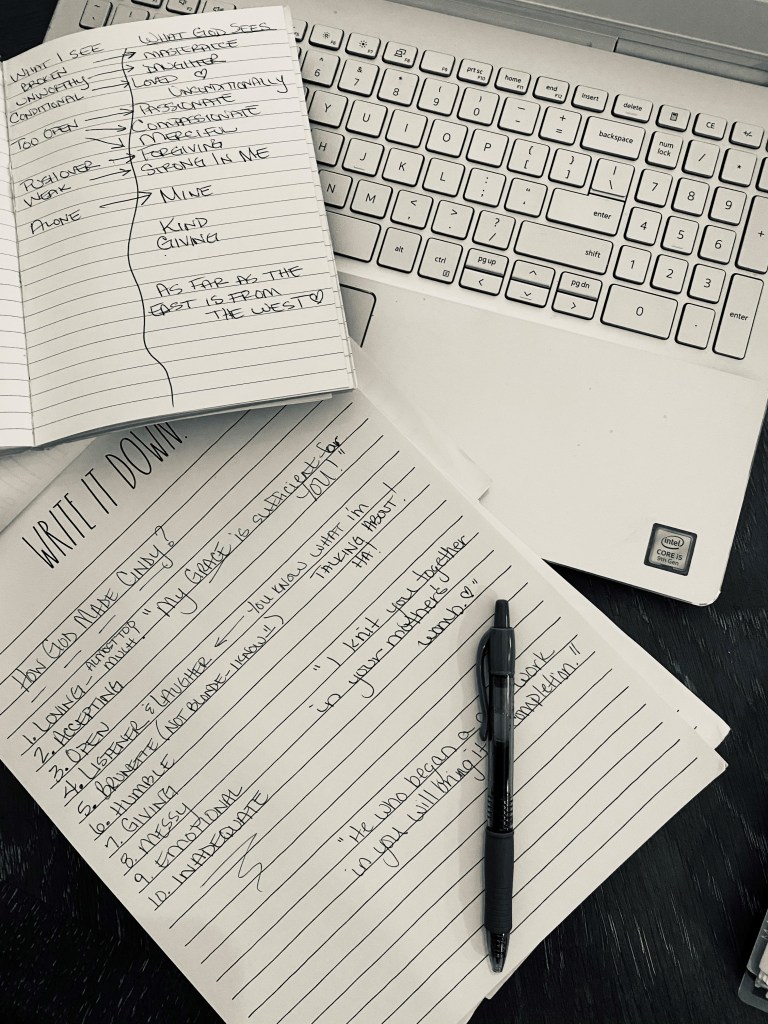 WHAT I SEE
BROKEN
UNWORTHY
CONDITIONAL
TOO OPEN
PUSHOVER
WEAK
ALONE
WHAT GOD SEES
MASTERPIECE
DAUGHTER
LOVED ♡
UNCONDITIONALLY
PASSIONATE
COMPASSIONATE
MERCIFUL
FORGIVING
STRONG IN ME
MINE
KIND
GIVING
AS FAR AS THE
EAST IS FROM
THE WEST ♡
WRITE IT DOWN.
HOW GOD MADE CINDY?
1. LOVING - ALMOST TOO MUCH? "My GRACE is sufficient for
YOU!"
2. ACCEPTING
3. OPEN
4. LISTENER & LAUGHER ← YOU KNOW WHAT I'm
TALKING ABOUT!
HA!
5. BRUNETTE (NOT BLONDE - I KNOW!!)
6. HUMBLE
7. GIVING
8. MESSY
9. EMOTIONAL
10. INADEQUATE
"I knit you together
in your mother's
womb. ♡"
"He who began a work
in you will bring it completion."
prt sc
home
end
insert
delete
CE
6
7
8
9
0
backspace
num
lock
Y
U
I
O
P
7
8
9
H
J
K
L
enter
4
5
6
N
M
shift
1
2
3
alt
ctrl
pg up
pg dn
0
enter
intel
CORE i5
9th Gen